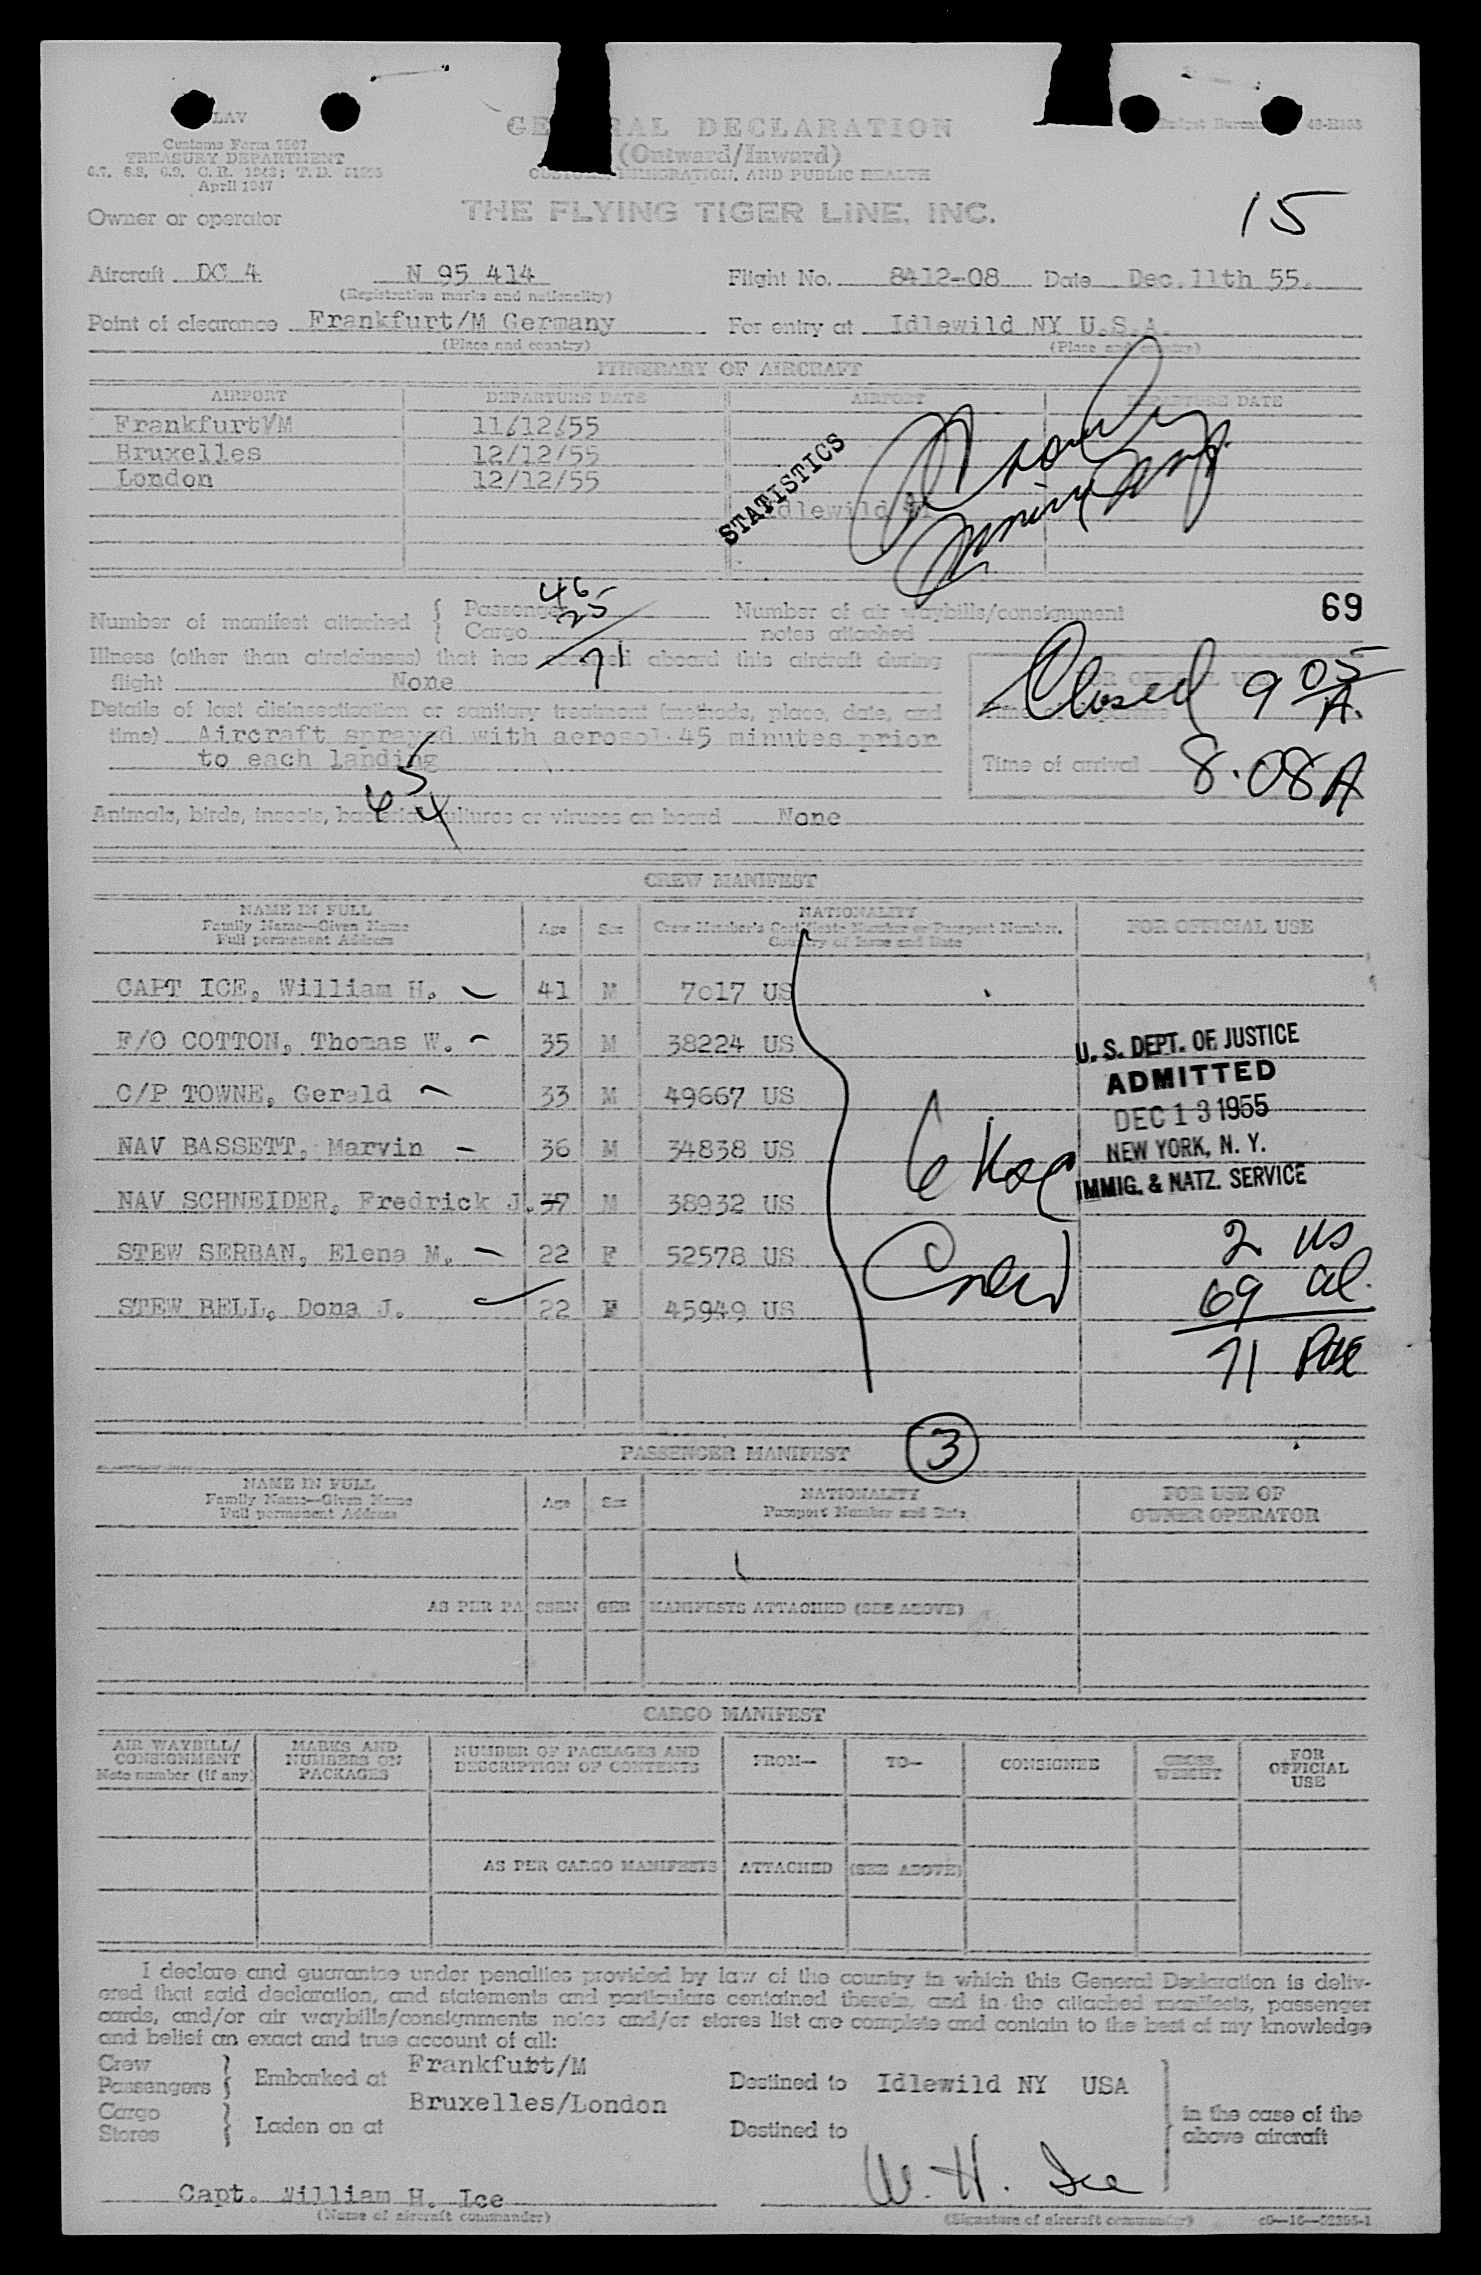 LAV
GENERAL DECLARATION
(Outward/Inward)
CUSTOMS, IMMIGRATION, AND PUBLIC HEALTH
Customs Form 7507
TREASURY DEPARTMENT
April 1947
Owner or operator THE FLYING TIGER LINE, INC.
15
Aircraft DC 4 N 95 414 Flight No. 8412-08 Date Dec. 11th 55.
(Registration marks and nationality)
Point of clearance Frankfurt/M Germany For entry at Idlewild NY U.S.A.
(Place and country) (Place and country)
ITINERARY OF AIRCRAFT
AIRPORT DEPARTURE DATE AIRPORT DEPARTURE DATE
Frankfurt/M 11/12/55
Bruxelles 12/12/55
London 12/12/55
STATISTICS
Idlewild
46
25
71
Number of manifest attached { Passenger
Cargo
Number of air waybills/consignment
notes attached
69
Illness (other than airsickness) that has occurred aboard this aircraft during
flight None
FOR OFFICIAL USE
Closed 9 05 A.
Details of last disinsectization or sanitary treatment (methods, place, date, and
time) Aircraft sprayed with aerosol 45 minutes prior
to each landing
Time of arrival 8.08 A
Animals, birds, insects, bacterial cultures or viruses on board None
CREW MANIFEST
NAME IN FULL
Family Name—Given Name
Full permanent Address
Age Sex
NATIONALITY
Crew Member's Certificate Number or Passport Number,
Country of Issue and Date
FOR OFFICIAL USE
CAPT ICE, William H. 41 M 7017 US
F/O COTTON, Thomas W. 35 M 38224 US
C/P TOWNE, Gerald 33 M 49667 US
NAV BASSETT, Marvin 36 M 34838 US
NAV SCHNEIDER, Fredrick J. 37 M 38932 US
STEW SERBAN, Elena M. 22 F 52578 US
STEW BELL, Dona J. 22 F 45949 US
U. S. DEPT. OF JUSTICE
ADMITTED
DEC 13 1955
NEW YORK, N. Y.
IMMIG. & NATZ. SERVICE
2 US
69 al.
71 Pax
3
PASSENGER MANIFEST
NAME IN FULL
Family Name—Given Name
Full permanent Address
Age Sex
NATIONALITY
Passport Number and Date
FOR USE OF
OWNER OPERATOR
AS PER PASSENGER MANIFESTS ATTACHED (SEE ABOVE)
CARGO MANIFEST
AIR WAYBILL/
CONSIGNMENT
Note number (if any)
MARKS AND
NUMBERS ON
PACKAGES
NUMBER OF PACKAGES AND
DESCRIPTION OF CONTENTS
FROM—
TO—
CONSIGNEE
GROSS
WEIGHT
FOR
OFFICIAL
USE
AS PER CARGO MANIFESTS ATTACHED (SEE ABOVE)
I declare and guarantee under penalties provided by law of the country in which this General Declaration is deliv-
ered that said declaration, and statements and particulars contained therein, and in the attached manifests, passenger
cards, and/or air waybills/consignments notes and/or stores list are complete and contain to the best of my knowledge
and belief an exact and true account of all:
Crew
Passengers } Embarked at Frankfurt/M
Bruxelles/London
Destined to Idlewild NY USA
Cargo
Stores } Laden on at
Destined to
in the case of the
above aircraft
Capt. William H. Ice
W. H. Ice
(Name of aircraft commander) (Signature of aircraft commander)